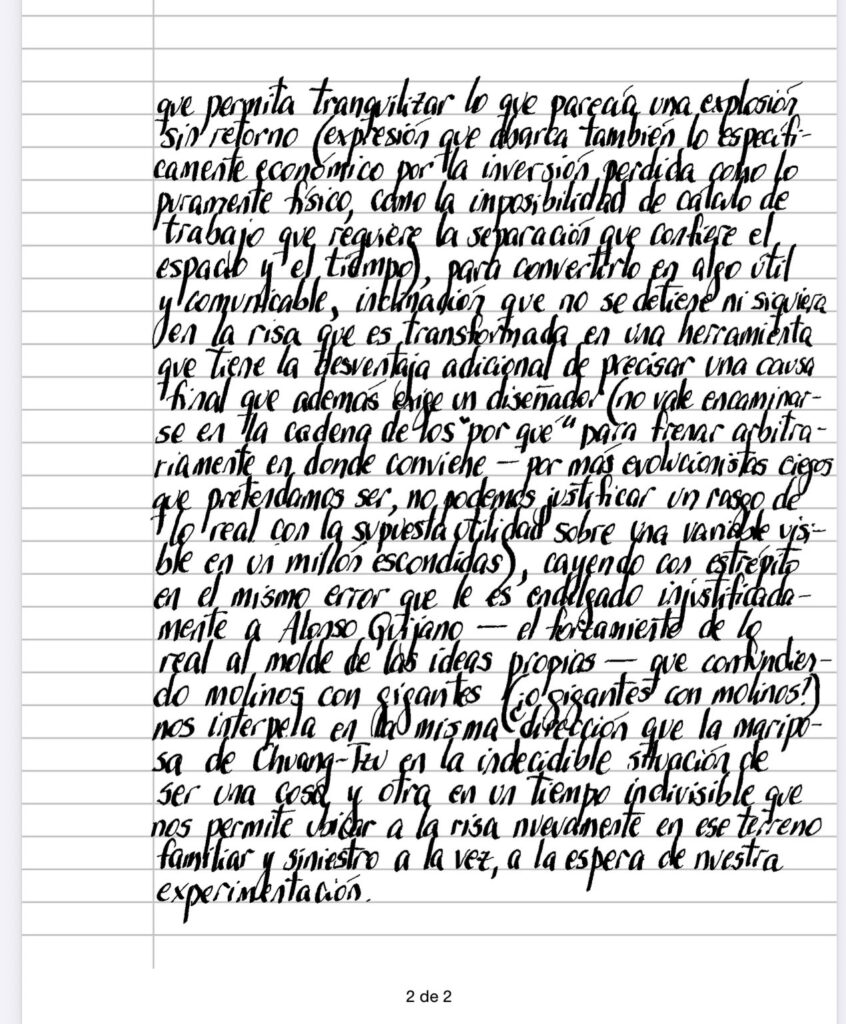 que permita tranquilizar lo que parecía una explosión
sin retorno (expresión que abarca también lo específi-
camente económico por la inversión perdida como lo
puramente físico, como la imposibilidad de cálculo de
trabajo que requiere la separación que confiere el
espacio y el tiempo), para convertirlo en algo útil
y comunicable, inclinación que no se detiene ni siquiera
en la risa que es transformada en una herramienta
que tiene la desventaja adicional de precisar una causa
final que además exige un diseñador (no vale encaminar-
se en la cadena de los "por que" para frenar arbitra-
riamente en donde conviene — por más evolucionistas ciegos
que pretendamos ser, no podemos justificar un rasgo de
lo real con la supuesta utilidad sobre una variable visi-
ble en un millón escondidas), cayendo con estrépito
en el mismo error que le es endilgado injustificada-
mente a Alonso Quijano — el forzamiento de lo
real al molde de las ideas propias — que confundien-
do molinos con gigantes (¡o gigantes con molinos!)
nos interpela en la misma dirección que la maripo-
sa de Chuang-Tzu en la indecidible situación de
ser una cosa y otra en un tiempo indivisible que
nos permite ubicar a la risa nuevamente en ese terreno
familiar y siniestro a la vez, a la espera de nuestra
experimentación.
2 de 2